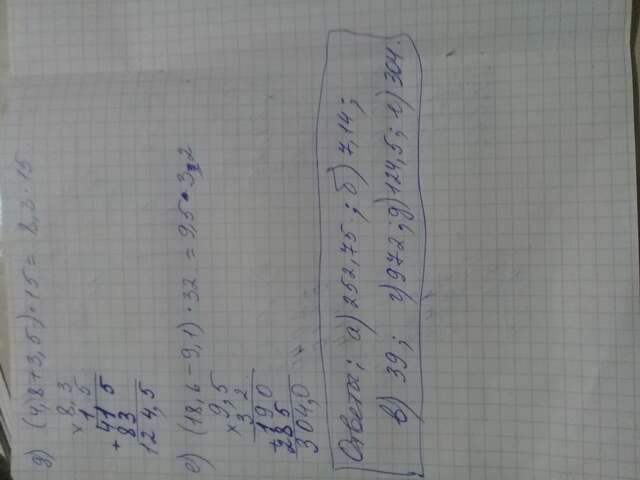 д) (4,8+3,5)·15= 8,3·15
×8,3
1 5
41 5
+83
124,5
е) (18,6-9,1)·32 = 9,5·32
×9,5
3 2
190
+285
304,0
Ответы; а) 252,75; б) 7,14;
в) 39; г) 972; д) 124,5; е) 304.